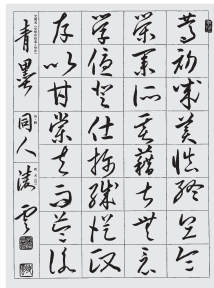 篤初誠美慎終宜令
榮業所基藉甚無竟
學優登仕攝職從政
存以甘棠去而益詠
青墨同人